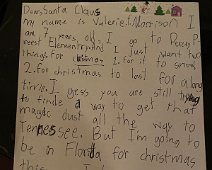 Dear Santa Claus
my name is Valerie Morrison I
am 7 years old. I go to Percy
Priest Elementry. And I Just want two
things for 1. for it to snow
2. for christmas to last for a long
time. I gess you are still trying
to finde a way to get that
magic dust all the way to
Tennessee. But I'm going to
be in Florida for christmas
this